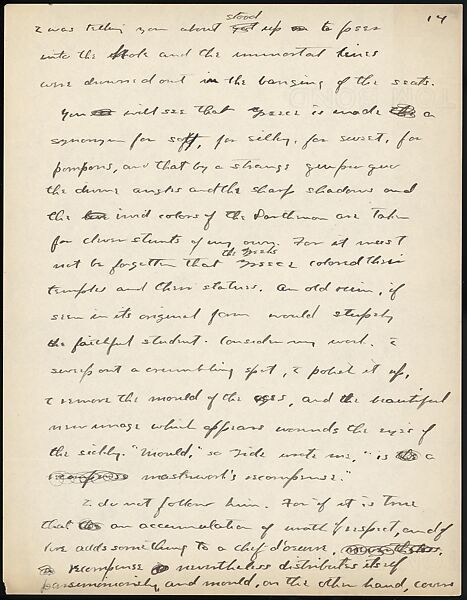 14
I was telling you about stood up to peer
into the hole and the immortal lines
were drowned out in the banging of the seats.
You will see that Greece is made a
synonym for soft, for silky, for sweet, for
pompous, and that by a strange
the divine angles and the sharp shadows and
the vivid colors of the Parthenon are taken
for clever stunts of my own. For it must
not be forgotten that the Greeks colored their
temples and their statues. An old ruin, if
seen in its original form would stupefy
the faithful student. Consider my work. I
sweep out a crumbling spot, I polish it up,
I remove the mould of the ages, and the beautiful
new image which appears wounds the eyes of
the sickly. "Mould," so Gide wrote me, "is a
masterwork's recompense."
I do not follow him. For if it is true
that an accumulation of wrath, respect, and of
love adds something to a chef d'oeuvre,
recompense nevertheless distributes itself
parsimoniously, and mould, on the other hand, covers